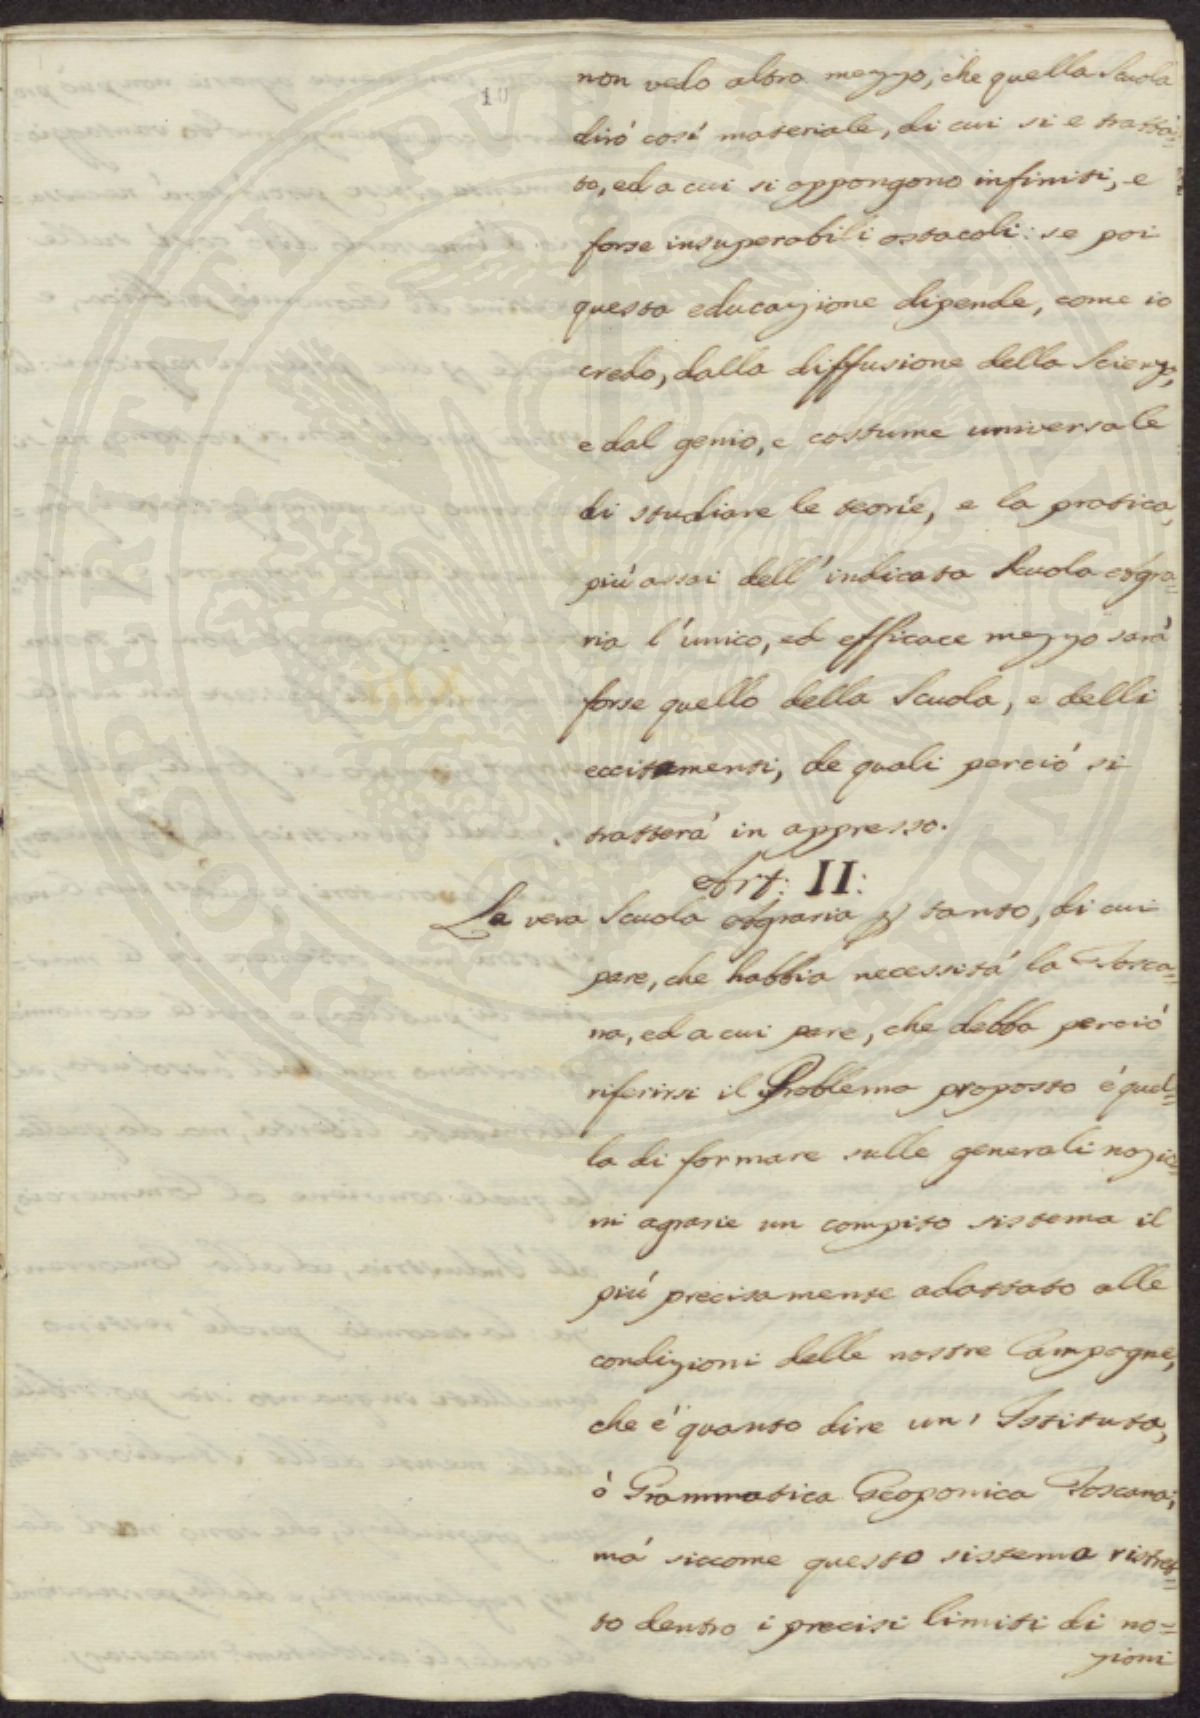 10
non vedo altro mezzo, che quella Scuola
dirò così materiale, di cui si e tratta=
to, ed a cui si oppongono infiniti, e
forse insuperabili ostacoli: se poi
questa educazione dipende, come io
credo, dalla diffusione della Scienza,
e dal genio, e costume universale
di studiare le teorie, e la pratica,
più assai dell'indicata Scuola Agra=
ria l'unico, ed efficace mezzo sarà
forse quello della Scuola, e delli
eccitamenti, de quali perciò si
tratterà in appresso.
Art: II:
La vera Scuola Agraria tanto, di cui
pare, che habbia necessità la Tosca=
na, ed a cui pare, che debba perciò
riferirsi il Problema proposto è quel=
la di formare sulle generali nozio=
ni agrarie un compito sistema il
più precisamente adattato alle
condizioni delle nostre Campagne,
che è quanto dire un' Istituta,
ò Grammatica Geoponica Toscana;
mà siccome questo sistema ristret=
to dentro i precisi limiti di no=
zioni
PROSPERITATI PUBLICAE AUGENDAE